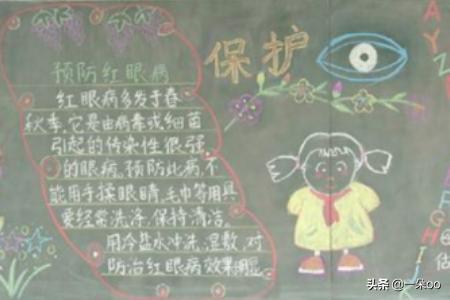 保护
预防红眼病
红眼病多发于春
秋季,它是由病毒或细菌
引起的传染性很强
的眼病,预防此病,不
能用手揉眼睛,毛巾等用具
要经常洗净,保持清洁,
用冷盐水冲洗、湿敷,对
防治红眼病效果明显
A
Y
Z
F
G
H
I
J
头条 @一朵oo